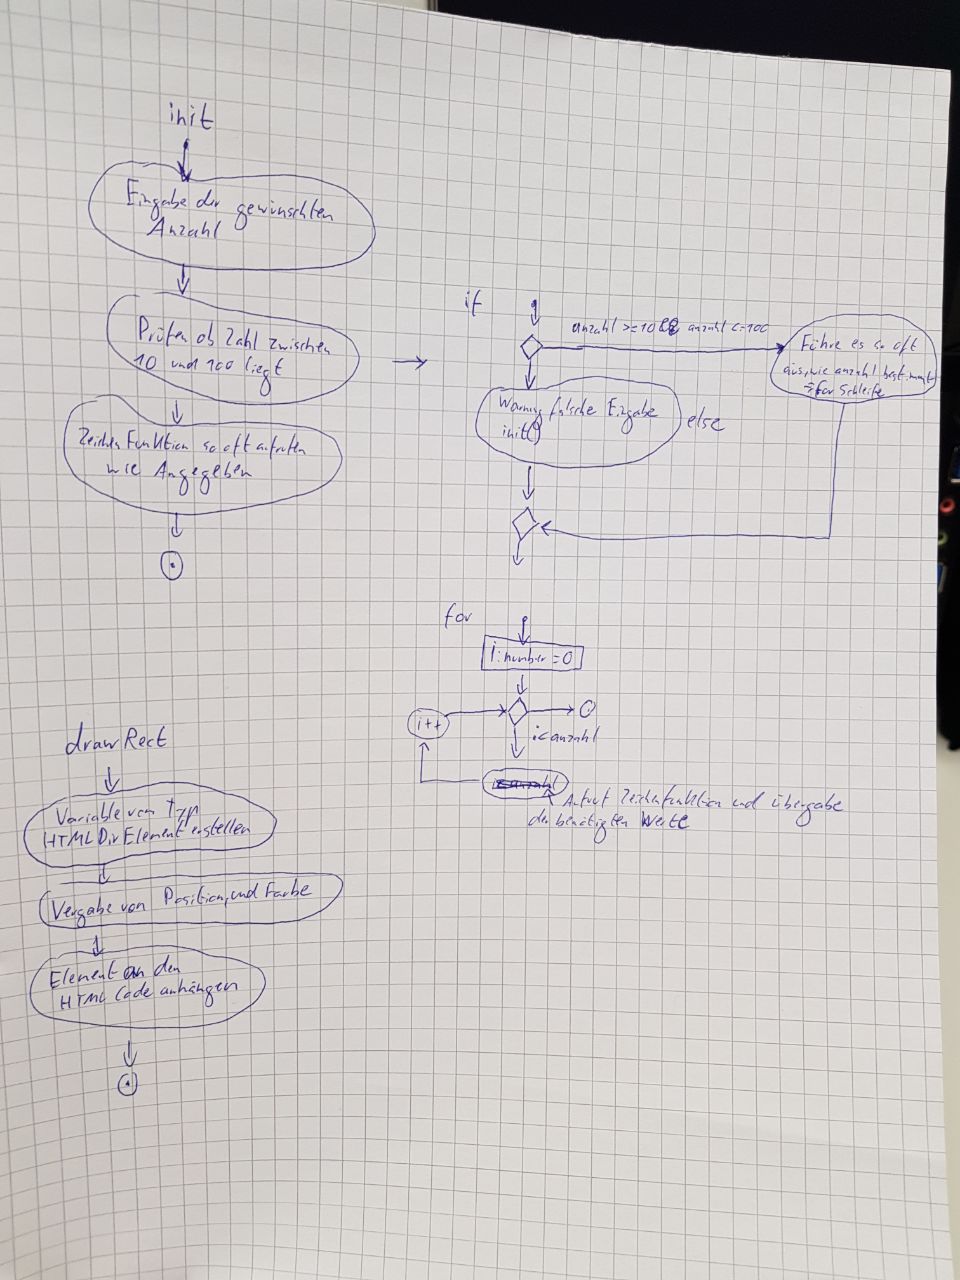 init
Eingabe der gewünschten
Anzahl
Prüfen ob Zahl zwischen
10 und 100 liegt
Zeichenfunktion so oft aufrufen
wie Angegeben
if
anzahl >= 10 && anzahl <= 100
Führe es so oft
aus, wie anzahl bestimmt
→ for Schleife
Warnung falsche Eingabe
init()
else
for
i: number = 0
i++
i < anzahl
Aufruf Zeichenfunktion und übergabe
der benötigten Werte
drawRect
Variable vom Typ
HTML Div Element erstellen
Vergabe von Position, und Farbe
Element an den
HTML Code anhängen